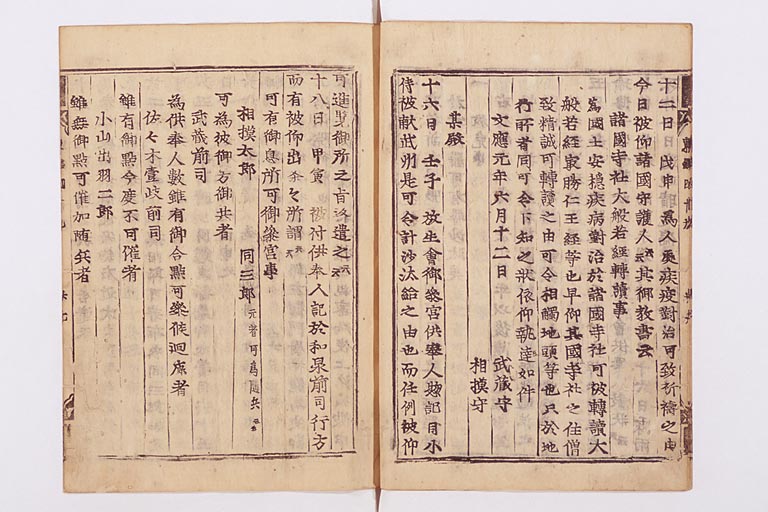 十二日 戊申 為人庶疾疫對治可致祈禱之由
今日被仰諸國守護人云云其御教書云
諸國寺社大般若經轉讀事
為國土安穩疾病對治於諸國寺社可被轉讀大
般若經最勝仁王經等也早仰其國寺社之住僧
致精誠可轉讀之由可令相觸地頭等也只於地
行所者同可令下知之狀依仰執達如件
文應元年六月十二日 武藏守
相摸守
某殿
十六日 壬子 放生會御參宮供奉人惣記自小
侍被獻武州是可令計沙汰給之由也而任例被仰
可進覽御所之旨被返遣之云云
十八日 甲寅 被付供奉人記於和泉前司行方
而有被仰出之所謂
可有御息所可御參宮事
相摸太郎 同三郎
可為被御方御共者
武藏前司
為供奉人數雖有御合點可參候廻廊者
佐々木壹岐前司
雖有御點今度不可催者
小山出羽二郎
雖無御點可催加随兵者